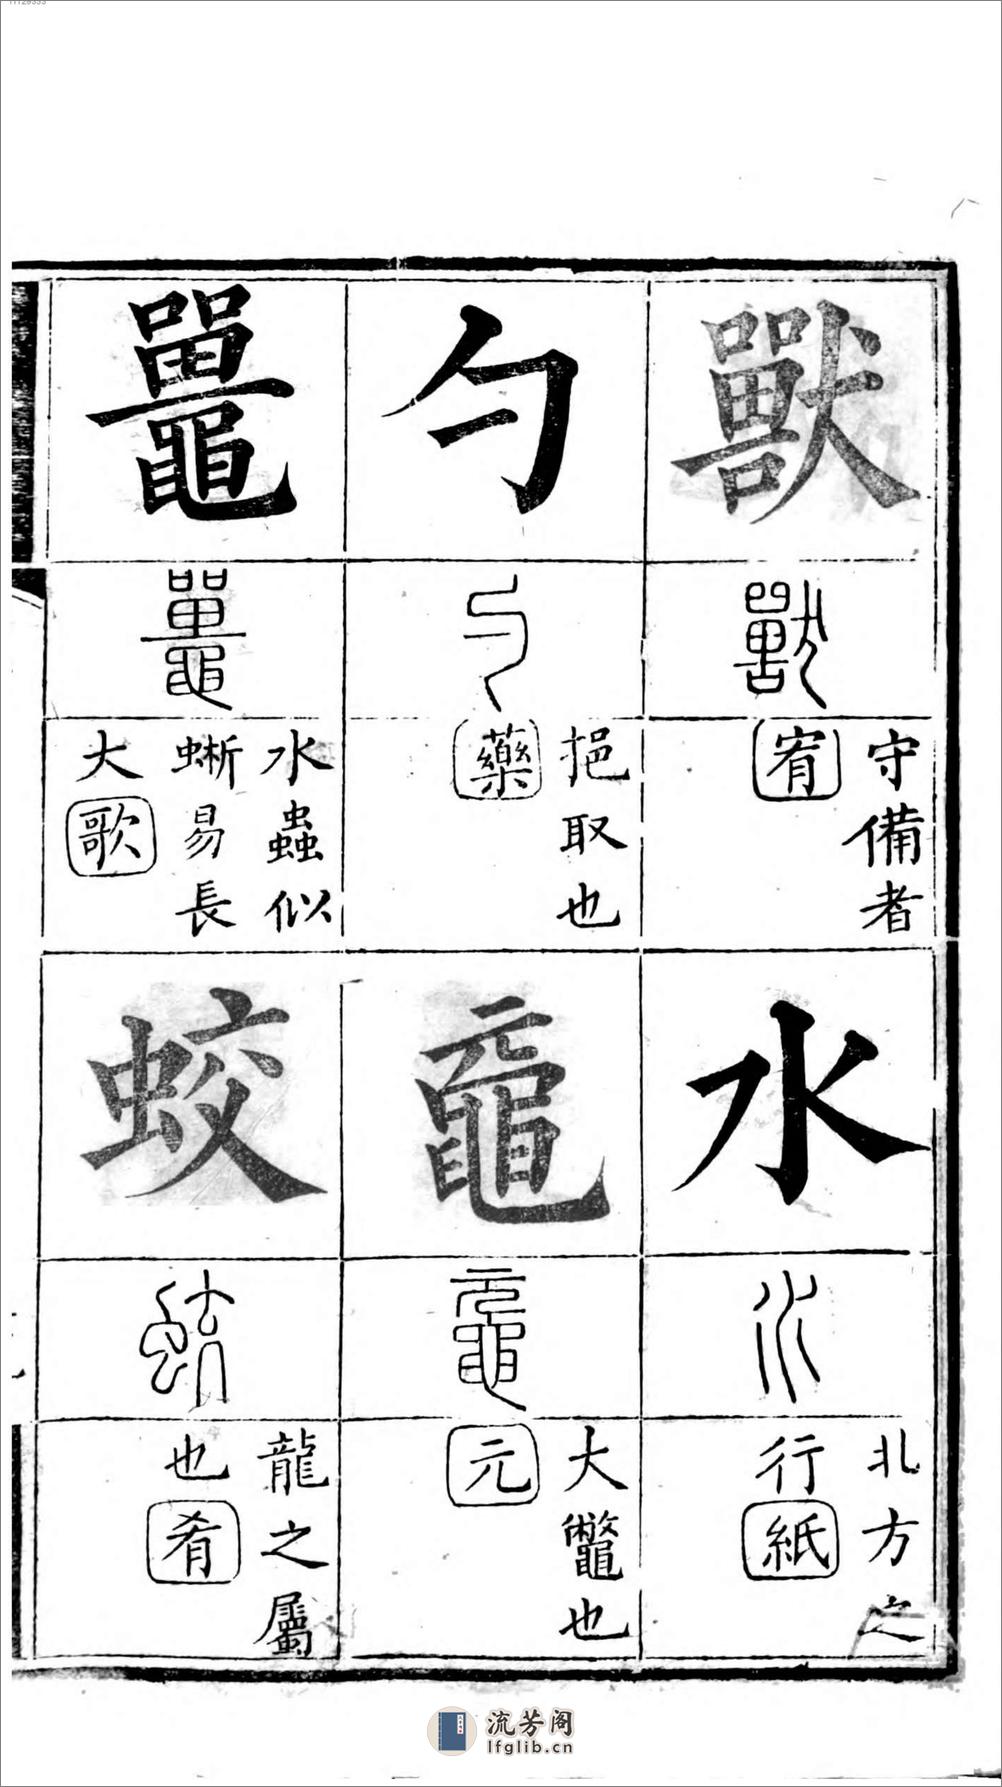 獸
獸
守備者
宥
水
水
北方之
行紙
勺
勺
挹取也
藥
黿
黿
大鼈也
元
鼉
鼉
水蟲似
蜥易長
大歌
蛟
蛟
龍之屬
也肴
流芳阁
lfglib.cn